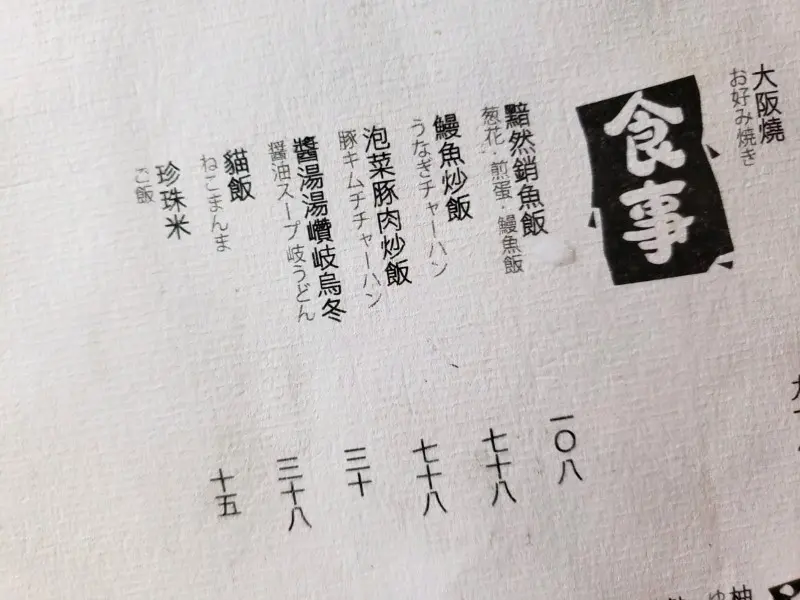 大阪燒
お好み焼き
食事
黯然銷魚飯
一〇八
葱花・煎蛋・鰻魚飯
鰻魚炒飯
七十八
うなぎチャーハン
泡菜豚肉炒飯
七十八
豚キムチチャーハン
醬湯湯巑岐烏冬
三十
醤油スープ 岐うどん
貓飯
三十八
ねこまんま
珍珠米
十五
ご飯
柚
ゆ